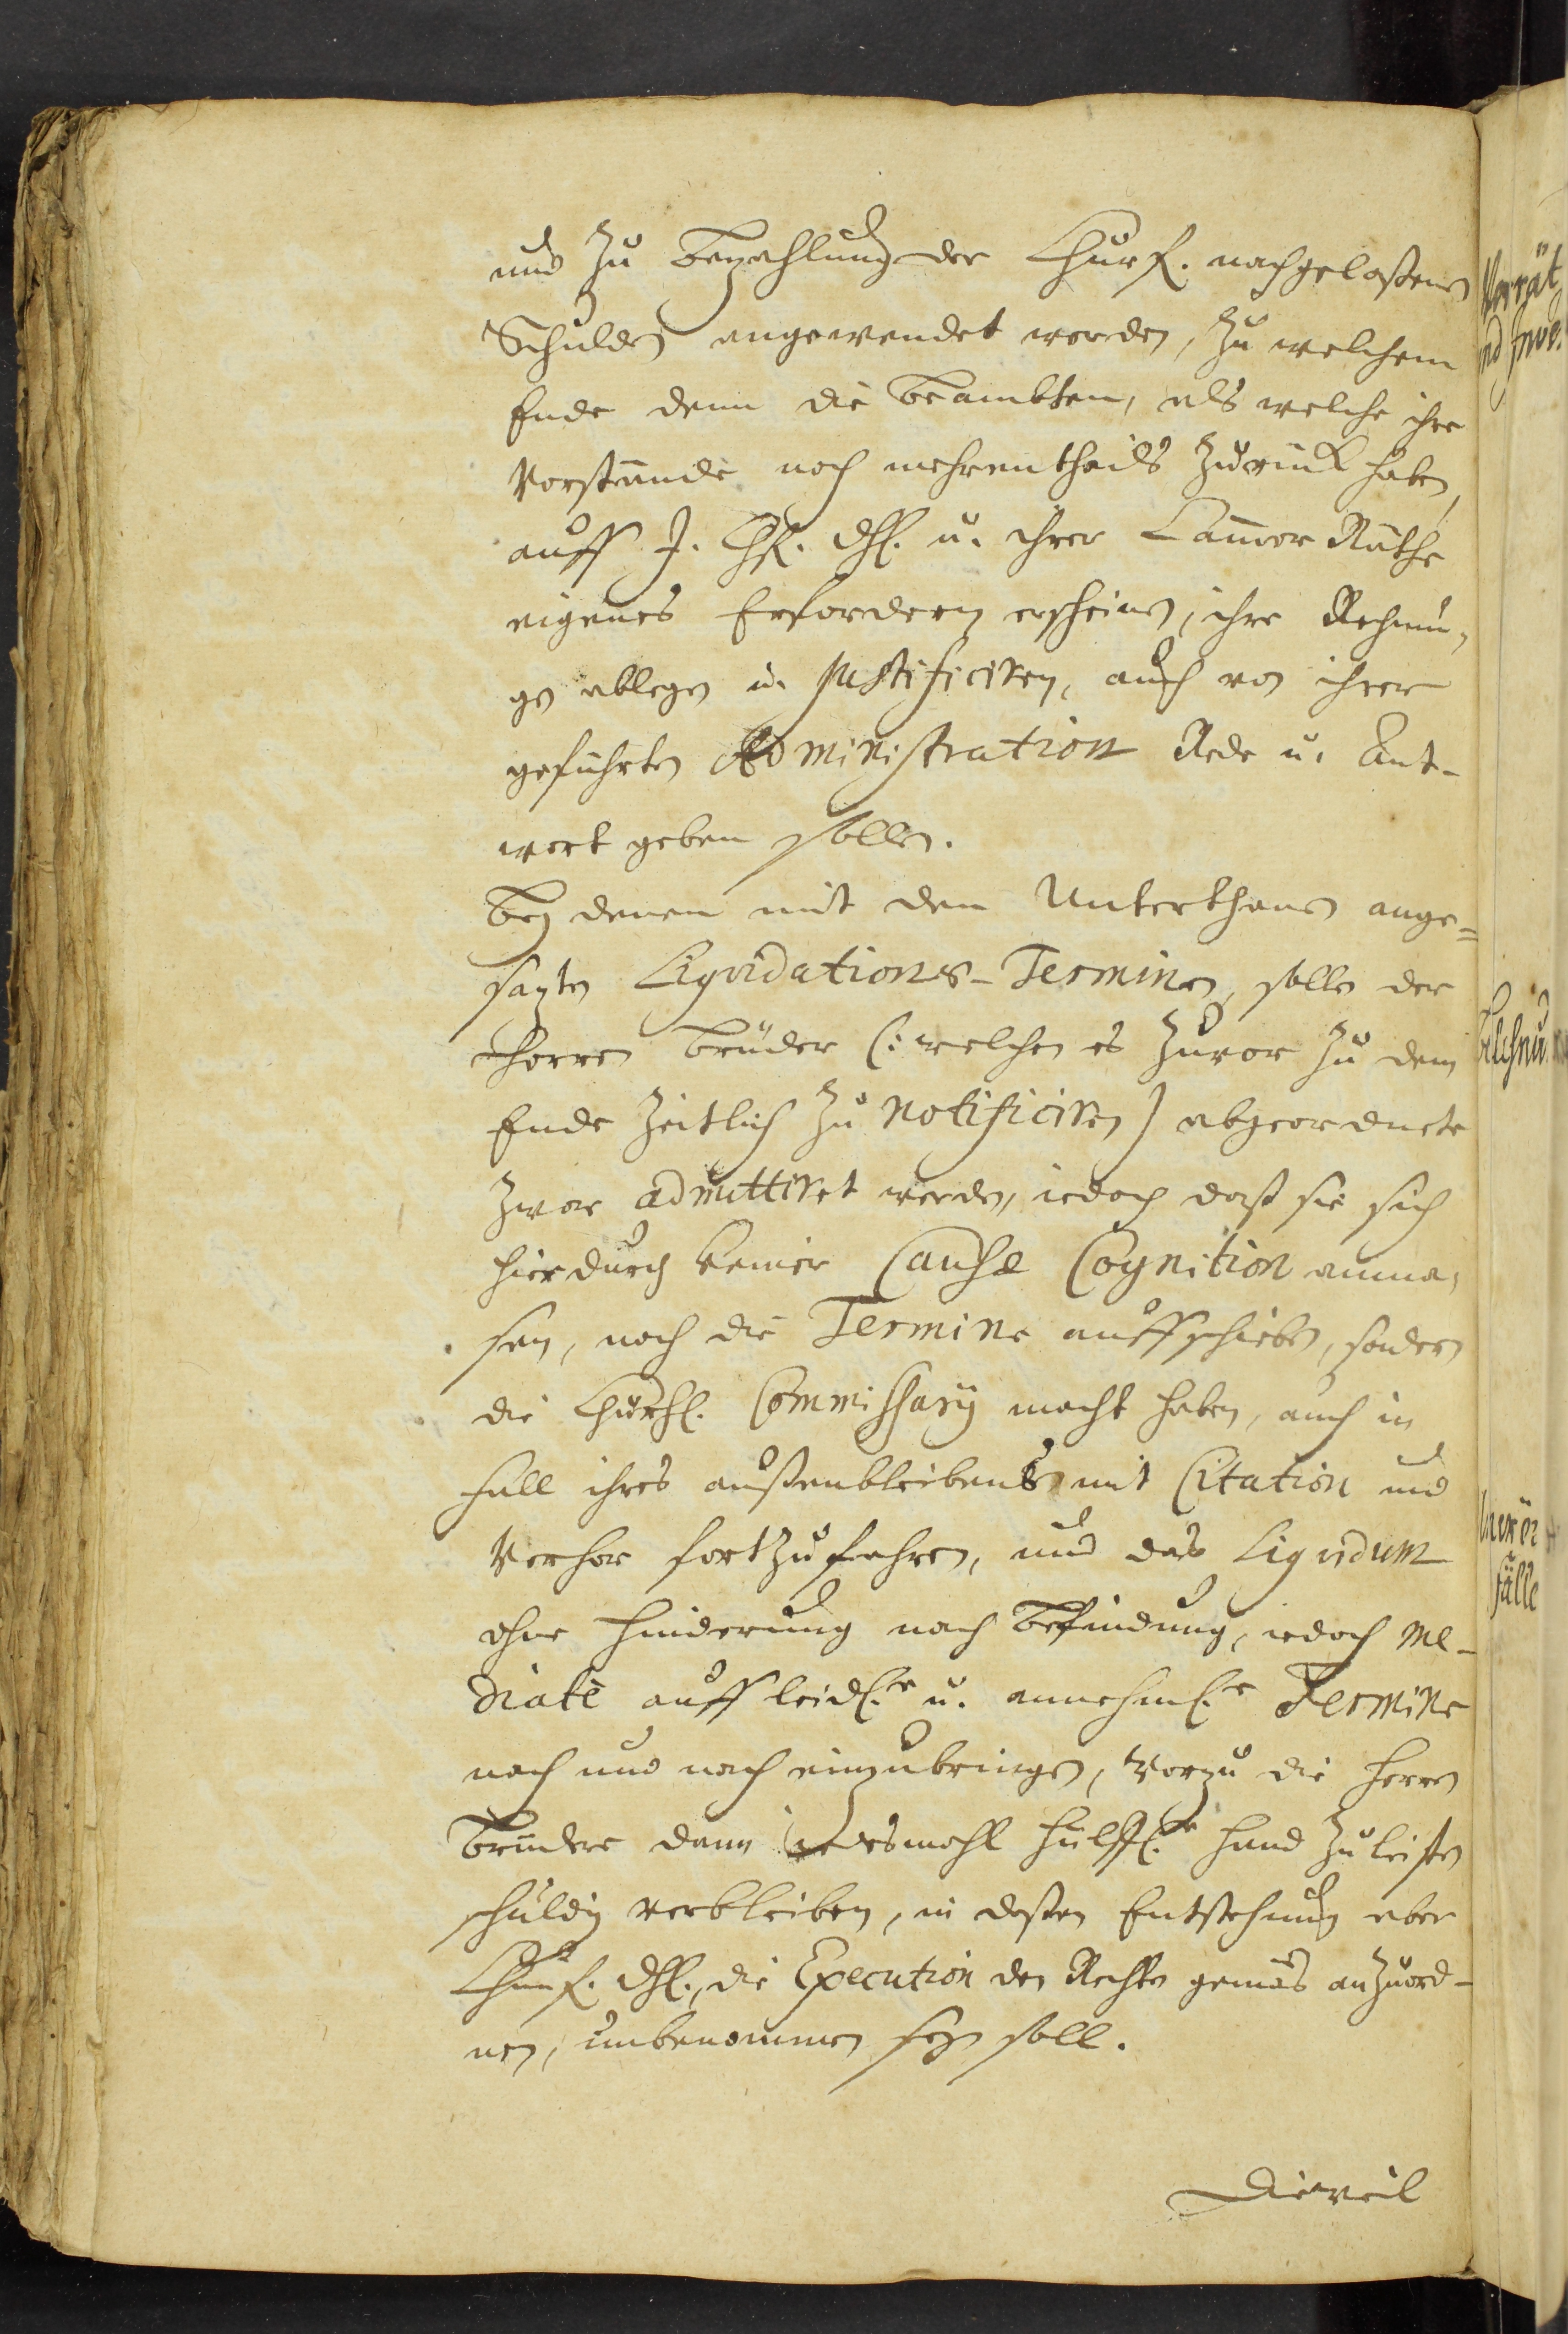 und zu bezahlung der Churf. nachgelaßenen
Schulden angewendet werden, zu welchem
Ende denn die beambten, als welche ihre
Vorstände noch mehrentheils zurück haben,
auff J. Chf. Dhl. u. ihrer Cam̄er Räthe
eigenes Erfordern erscheinen, ihre Rechnun,
gen ablegen u. justificiren, auch von ihrer
geführten Administration Rede u. Ant-
wort geben sollen.
Bey denen mit den Unterthanen ange=
sazten Liqvidations-Terminen, sollen der
Herren Brüder (: welchen es zuvor zu dem
Ende zeitlich zu notificiren) abgeordnete
zwar admittiret werden, iedoch daß sie sich
hierdurch keiner Causæ Cognition anma,
sen, noch die Termine auffschieben, sondern
die Churfl. Commissarij macht haben, auch in
fall ihres außenbleibens mit Citation und
Verhör fortzufahren, und das Liqvidum
ohne Hinderung nach befindung, iedoch me-
diatè auff leidl.e u. annehml.e Termine
nach und nach einzubringen, Worzu die Herren
Brüder dann iedesmahl hülffl.e Hand zu leisten
schuldig verbleiben, in deßen Entstehung aber
Churf. Dhl., die Execution den Rechten gemäs anzuord-
nen, unbenommen seyn soll.
Dieweil